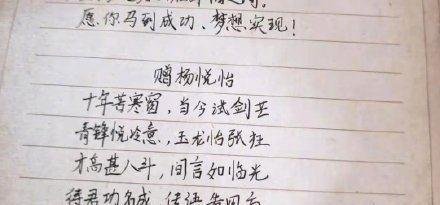 愿你马到成功、梦想实现！
赠杨悦怡
十年苦寒窗，当今试剑芒
青锋悦冷意，玉龙怡张狂
才高甚八斗，闻言如临光
待君功名成